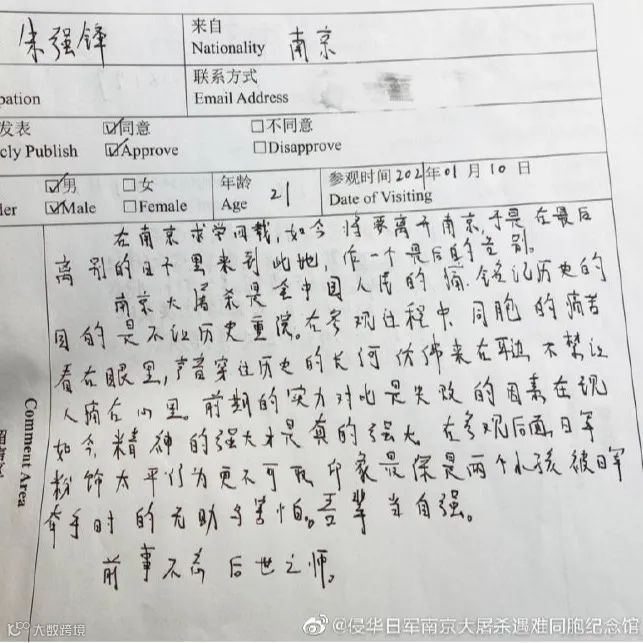 朱强锋
来自
Nationality 南京
pation
联系方式
Email Address
发表 ☑同意 □不同意
cly Publish ☑Approve □Disapprove
☑男 □女 年龄 21 参观时间2021年01月10日
der ☑Male □Female Age Date of Visiting
Comment Area
在南京求学四载,如今将要离开南京,于是在最后
离别的日子里来到此地,作一个最后的告别。
南京大屠杀是全中国人民的痛.铭记历史的
目的是不让历史重演。在参观过程中,同胞的痛苦
看在眼里,声音穿过历史的长河仿佛来在耳边,不禁让
人痛在心里。前期的实力对比是失败的因素在现
如今,精神的强大才是真的强大。在参观后面,日军
粉饰太平行为更不可取,印象最深是两个小孩被日军
牵手时的无助与害怕。吾辈当自强。
前事不忘后世之师。
大数跨境
@侵华日军南京大屠杀遇难同胞纪念馆